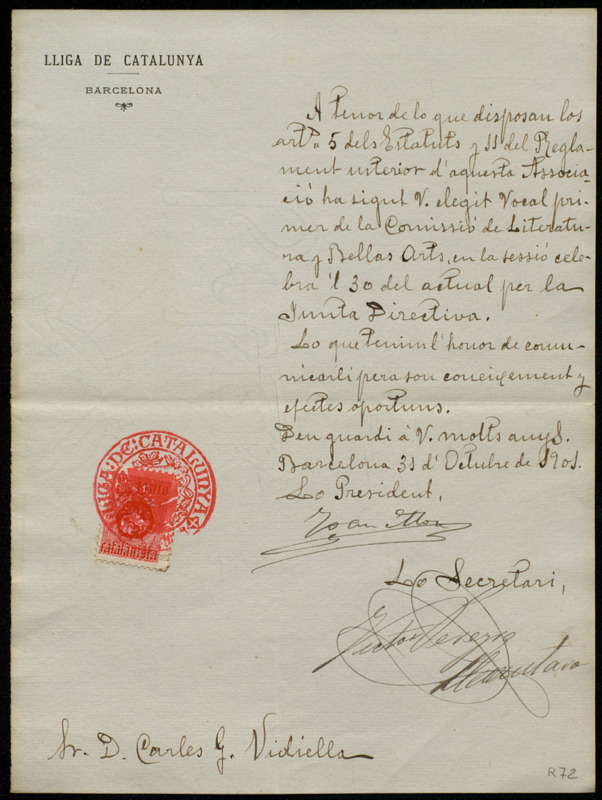 LLIGA DE CATALUNYA
BARCELONA
A tenor de lo que disposan los
arts. 5 dels Estatuts y 11 del Regla-
ment interior d'aquesta Associa-
ció ha sigut V. elegit Vocal pri-
mer de la Comissió de Literatu-
ra y Bellas Arts, en la sessió cele-
bra 'l 30 del actual per la
Junta Directiva.
Lo que tenim l'honor de comu-
nicarli pera son coneixement y
efectes oportuns.
Deu guardi à V. molts anys.
Barcelona 31 d'Octubre de 1901.
Lo President,
Joan
Lo Secretari,
LLIGA·DE·CATALUNYA
catalanista
Sr. D. Carles G. Vidiella
R72